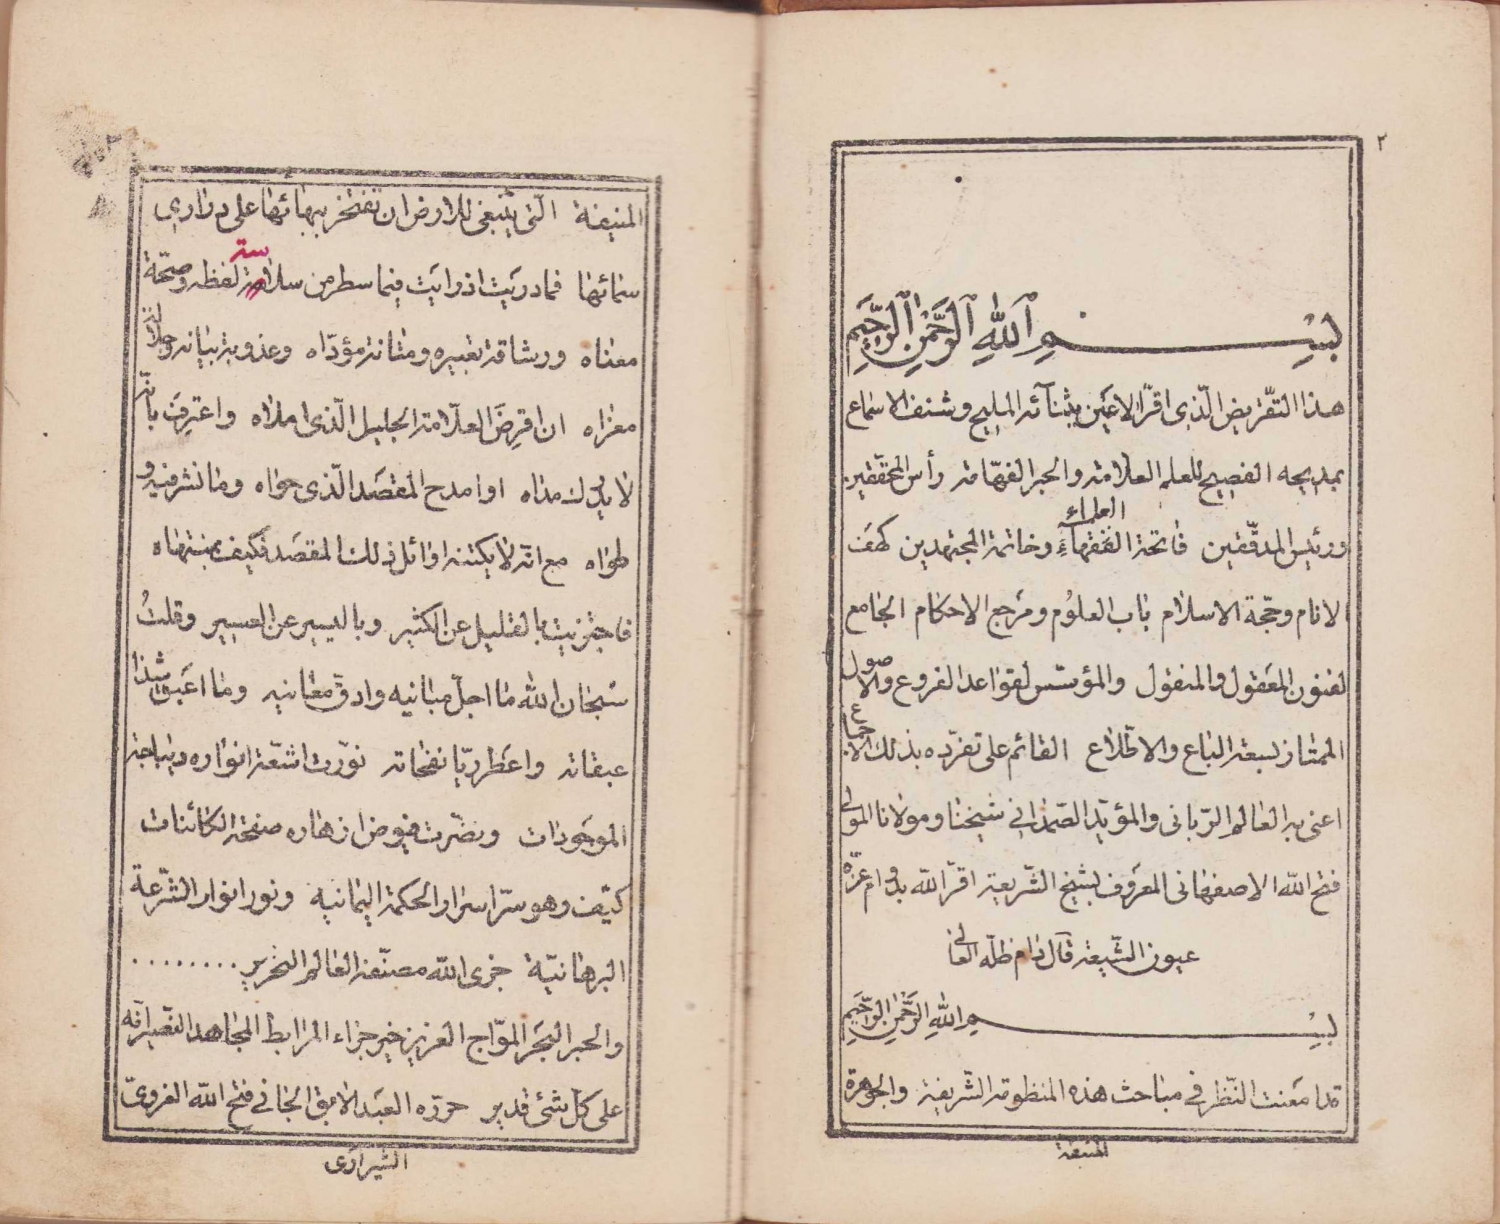 ٢
بسم الله الرحمن الرحيم
هذا التقريض الّذى اقرّ الاعين بثنآئه المليح وشنف الاسماع
بمديحه الفصيح للعلم العلامة والحبر الفهّامة رأس المحققين
العلماء
ورئيس المدقّقين فاتحة الفقهاء وخاتمة المجتهدين كهف
الانام وحجّة الاسلام باب العلوم ومرجع الاحكام الجامع
لفنون المعقول والمنقول والمؤسّس لقواعد الفروع والاصول
الممتاز بسعة الباع والاطلاع القائم على تفرّده بذلك الاجماع
اعنى به العالم الرّبانى والمؤيّد الصّمدانى شيخنا ومولانا المولى
فتح الله الاصفهانى المعروف بشيخ الشّريعة اقرّ الله بدوام عزّه
عيون الشّيعة قال دام ظلّه العالى
بسم الله الرحمن الرحيم
قد امعنت النّظر في مباحث هذه المنظومة الشّريفة والجوهرة
المنيفة
المنيفة الّتى ينبغى للارض ان تفتخر ببهائها على دراري
سته
سمائها فما دريت اذ رايت فيما سطر من سلامة لفظه وصحّة
معناه ورشاقة تعبيره ومتانة مؤدّاه وعذوبة بيانه وجلالة
مغزاه ان اقرض العلّامة الجليل الّذى املاه واعترف بانّه
لا يدرك مداه او امدح المقصد الّذى حواه وما نشر فيه و
طواه مع انّه لا يكتنه اوائل ذلك المقصد فكيف بمنتهاه
فاجتزيت بالقليل عن الكثير وباليسير عن العسير وقلت
سبحان الله ما اجلّ مبانيه وادقّ معانيه وما اعبق شذا
عبقاته واعطر ريّا نفحاته نوّرت اشعّة انواره ديباجة
الموجودات ونضّرت فيوض ازهاره صفحة الكائنات
كيف وهو سرّ اسرار الحكمة اليمانيه ونور انوار الشّرعة
البرهانيّة جزى الله مصنّفه العالم النحرير ........
والحبر البحر الموّاج الغزير خير جزاء المرابط المجاهد الفقير انّه
على كلّ شئ قدير حرّره العبد الآبق الجانى فتح الله الغروىّ
الشيرازى